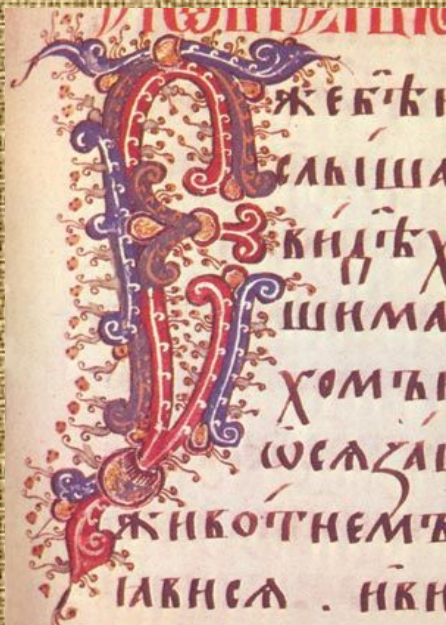 Ежебѣ
слыша
видѣх
шима
хомъ
ѡсѧза
животнемъ
ꙗвисѧ . иви